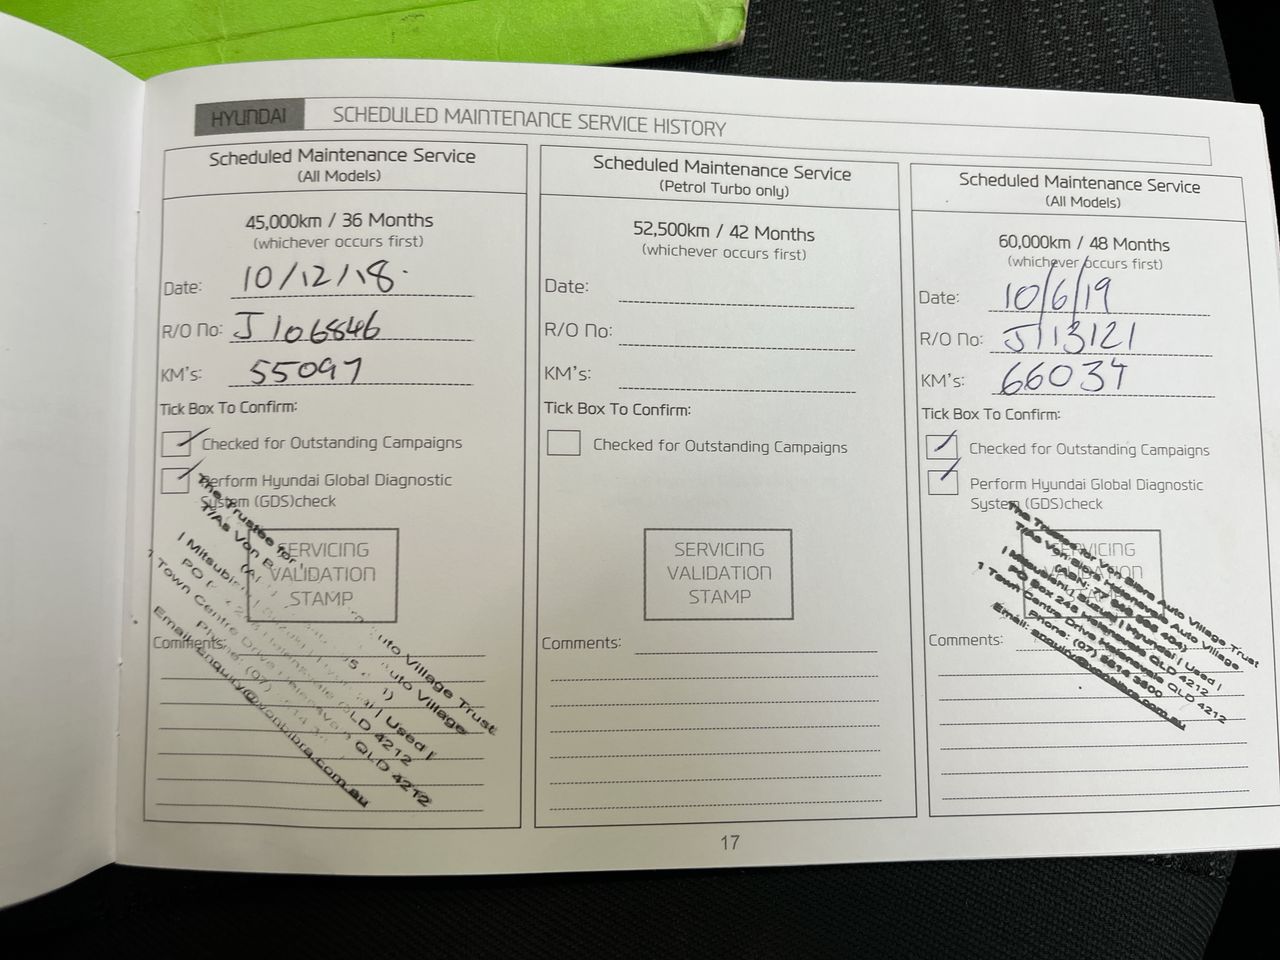 HYUNDAI SCHEDULED MAINTENANCE SERVICE HISTORY
Scheduled Maintenance Service
(All Models)
45,000km / 36 Months
(whichever occurs first)
Date: 10/12/18
R/O No: J106846
KM's: 55097
Tick Box To Confirm:
Checked for Outstanding Campaigns
Perform Hyundai Global Diagnostic
System (GDS)check
SERVICING
VALIDATION
STAMP
The Trustee for Auto Village Trust
T/As Von Auto Village
| Mitsubishi | Used |
PO QLD 4212
1 Town Centre Drive QLD 4212
Phone: (07)
Email: enquiry@vonbibra.com.au
Comments:
Scheduled Maintenance Service
(Petrol Turbo only)
52,500km / 42 Months
(whichever occurs first)
Date:
R/O No:
KM's:
Tick Box To Confirm:
Checked for Outstanding Campaigns
SERVICING
VALIDATION
STAMP
Comments:
Scheduled Maintenance Service
(All Models)
60,000km / 48 Months
(whichever occurs first)
Date: 10/6/19
R/O No: J113121
KM's: 66034
Tick Box To Confirm:
Checked for Outstanding Campaigns
Perform Hyundai Global Diagnostic
System (GDS)check
SERVICING
VALIDATION
STAMP
The Trustee for Von Bibra Auto Village Trust
T/As Von Bibra Helensvale Auto Village
| Mitsubishi | Suzuki | Hyundai | Used |
PO Box 248 Helensvale QLD 4212
1 Town Centre Drive Helensvale QLD 4212
Phone: (07)
Email: enquiry@vonbibra.com.au
Comments:
17